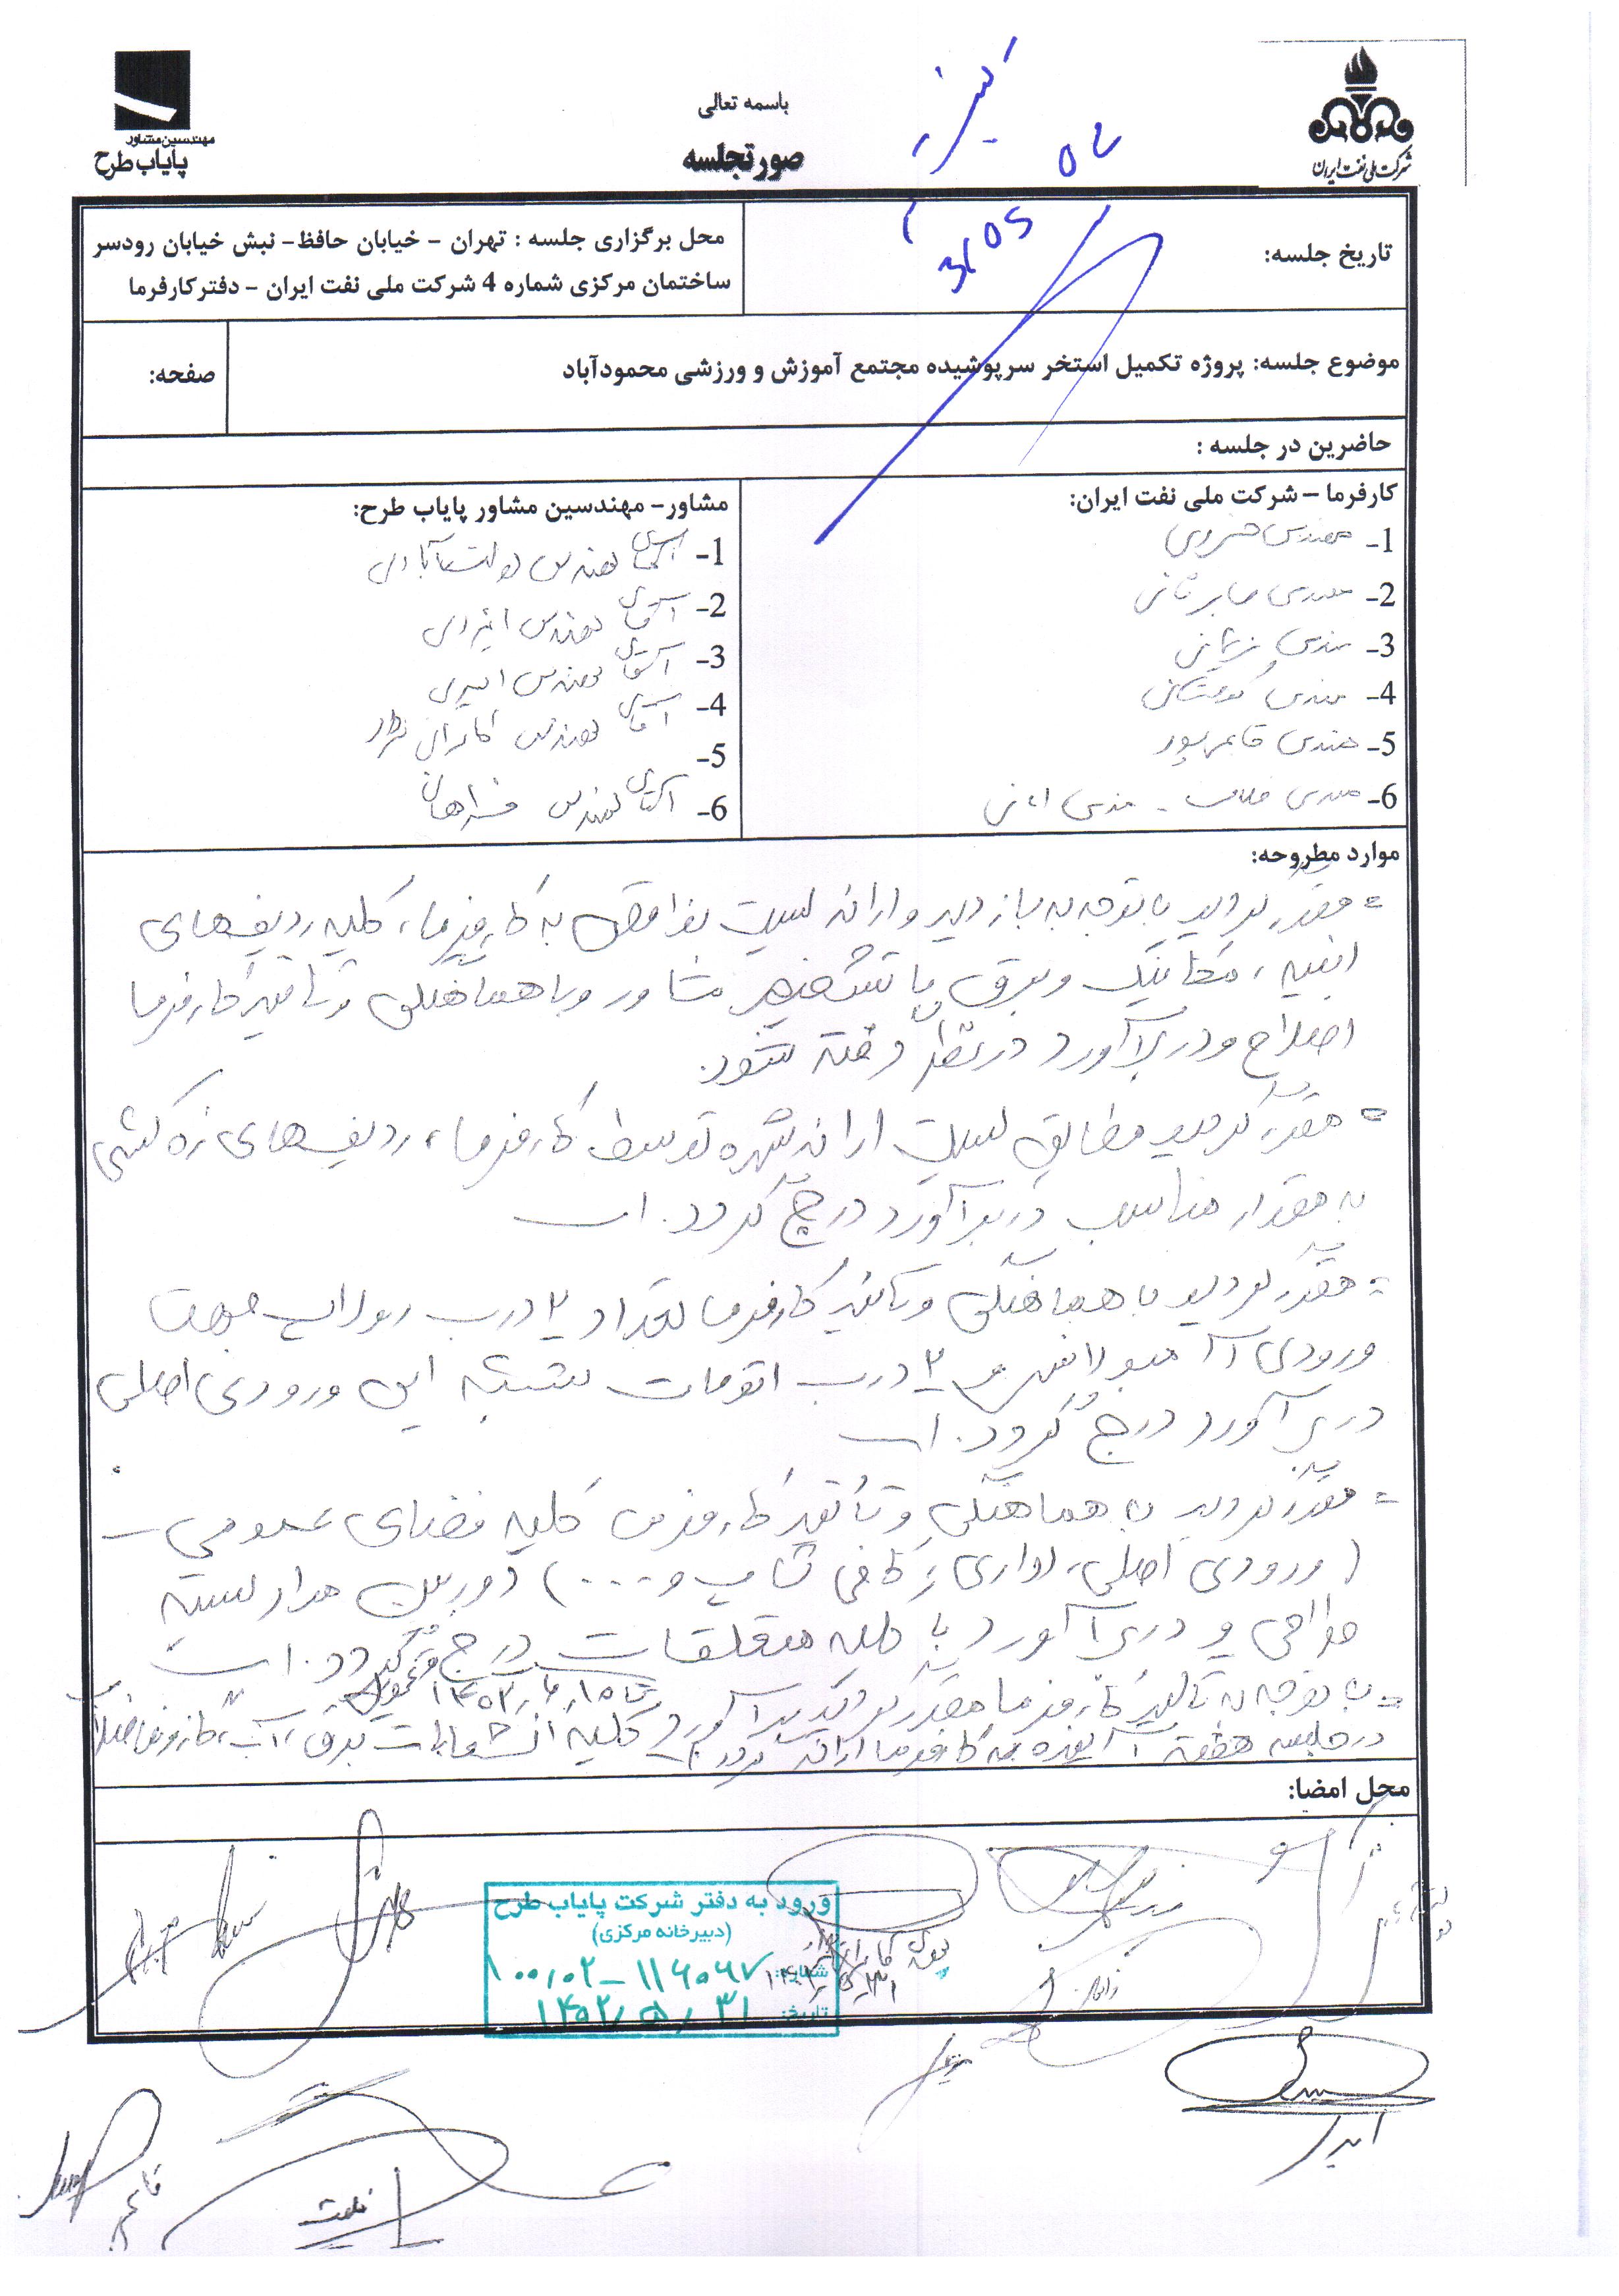 باسمه تعالی
صورتجلسه
شرکت ملی نفت ایران
مهندسین مشاور
پایاب طرح
تاریخ جلسه:
31 05 02
محل برگزاری جلسه : تهران - خیابان حافظ- نبش خیابان رودسر
ساختمان مرکزی شماره 4 شرکت ملی نفت ایران - دفتر کارفرما
موضوع جلسه: پروژه تکمیل استخر سرپوشیده مجتمع آموزش و ورزشی محمودآباد
صفحه:
حاضرین در جلسه :
کارفرما – شرکت ملی نفت ایران:
1- مهندس خسروی
2- مهندس
3- مهندس
4- مهندس
5- مهندس قاسم پور
6- مهندس - مهندس
مشاور- مهندسین مشاور پایاب طرح:
1- آقای مهندس دولت آبادی
2- آقای مهندس
3- آقای مهندس امیری
4- آقای مهندس کامرانی
5-
6- آقای مهندس فراهانی
موارد مطروحه:
= مقرر گردید با توجه به بازدید و ارائه لیست نواقص به کارفرما، کلیه ردیف‌های
ابنیه، مکانیک و برق با تشخیص مشاور و با هماهنگی و تائید کارفرما
اصلاح و در برآورد در نظر گرفته شود.
= مقرر گردید مطابق لیست ارائه شده توسط کارفرما، ردیف‌های زه کشی
به مقدار مناسب در برآورد درج گردد. است
= مقرر گردید با هماهنگی و تائید کارفرما تعداد ۲ درب جهت
ورودی آمبولانس و ۲ درب اتومات شیشه ای ورودی اصلی
در برآورد درج گردد. است
= مقرر گردید با هماهنگی و تائید کارفرما کلیه فضای عمومی
(ورودی اصلی، اداری، کافی شاپ و ....) دوربین مدار بسته
طراحی و در برآورد با کلیه متعلقات درج گردد. است
= با توجه به تاکید کارفرما مقرر گردید برآورد و کلیه انشعابات برق، آب، گاز و فاضلاب
در جلسه هفته آینده به کارفرما ارائه گردد
محل امضا:
ورود به دفتر شرکت پایاب طرح
(دبیرخانه مرکزی)
شماره: ۱۰۰,۰۲-۱۱۶۰۶۷
تاریخ: ۱۴۰۲,۰۵,۳۱